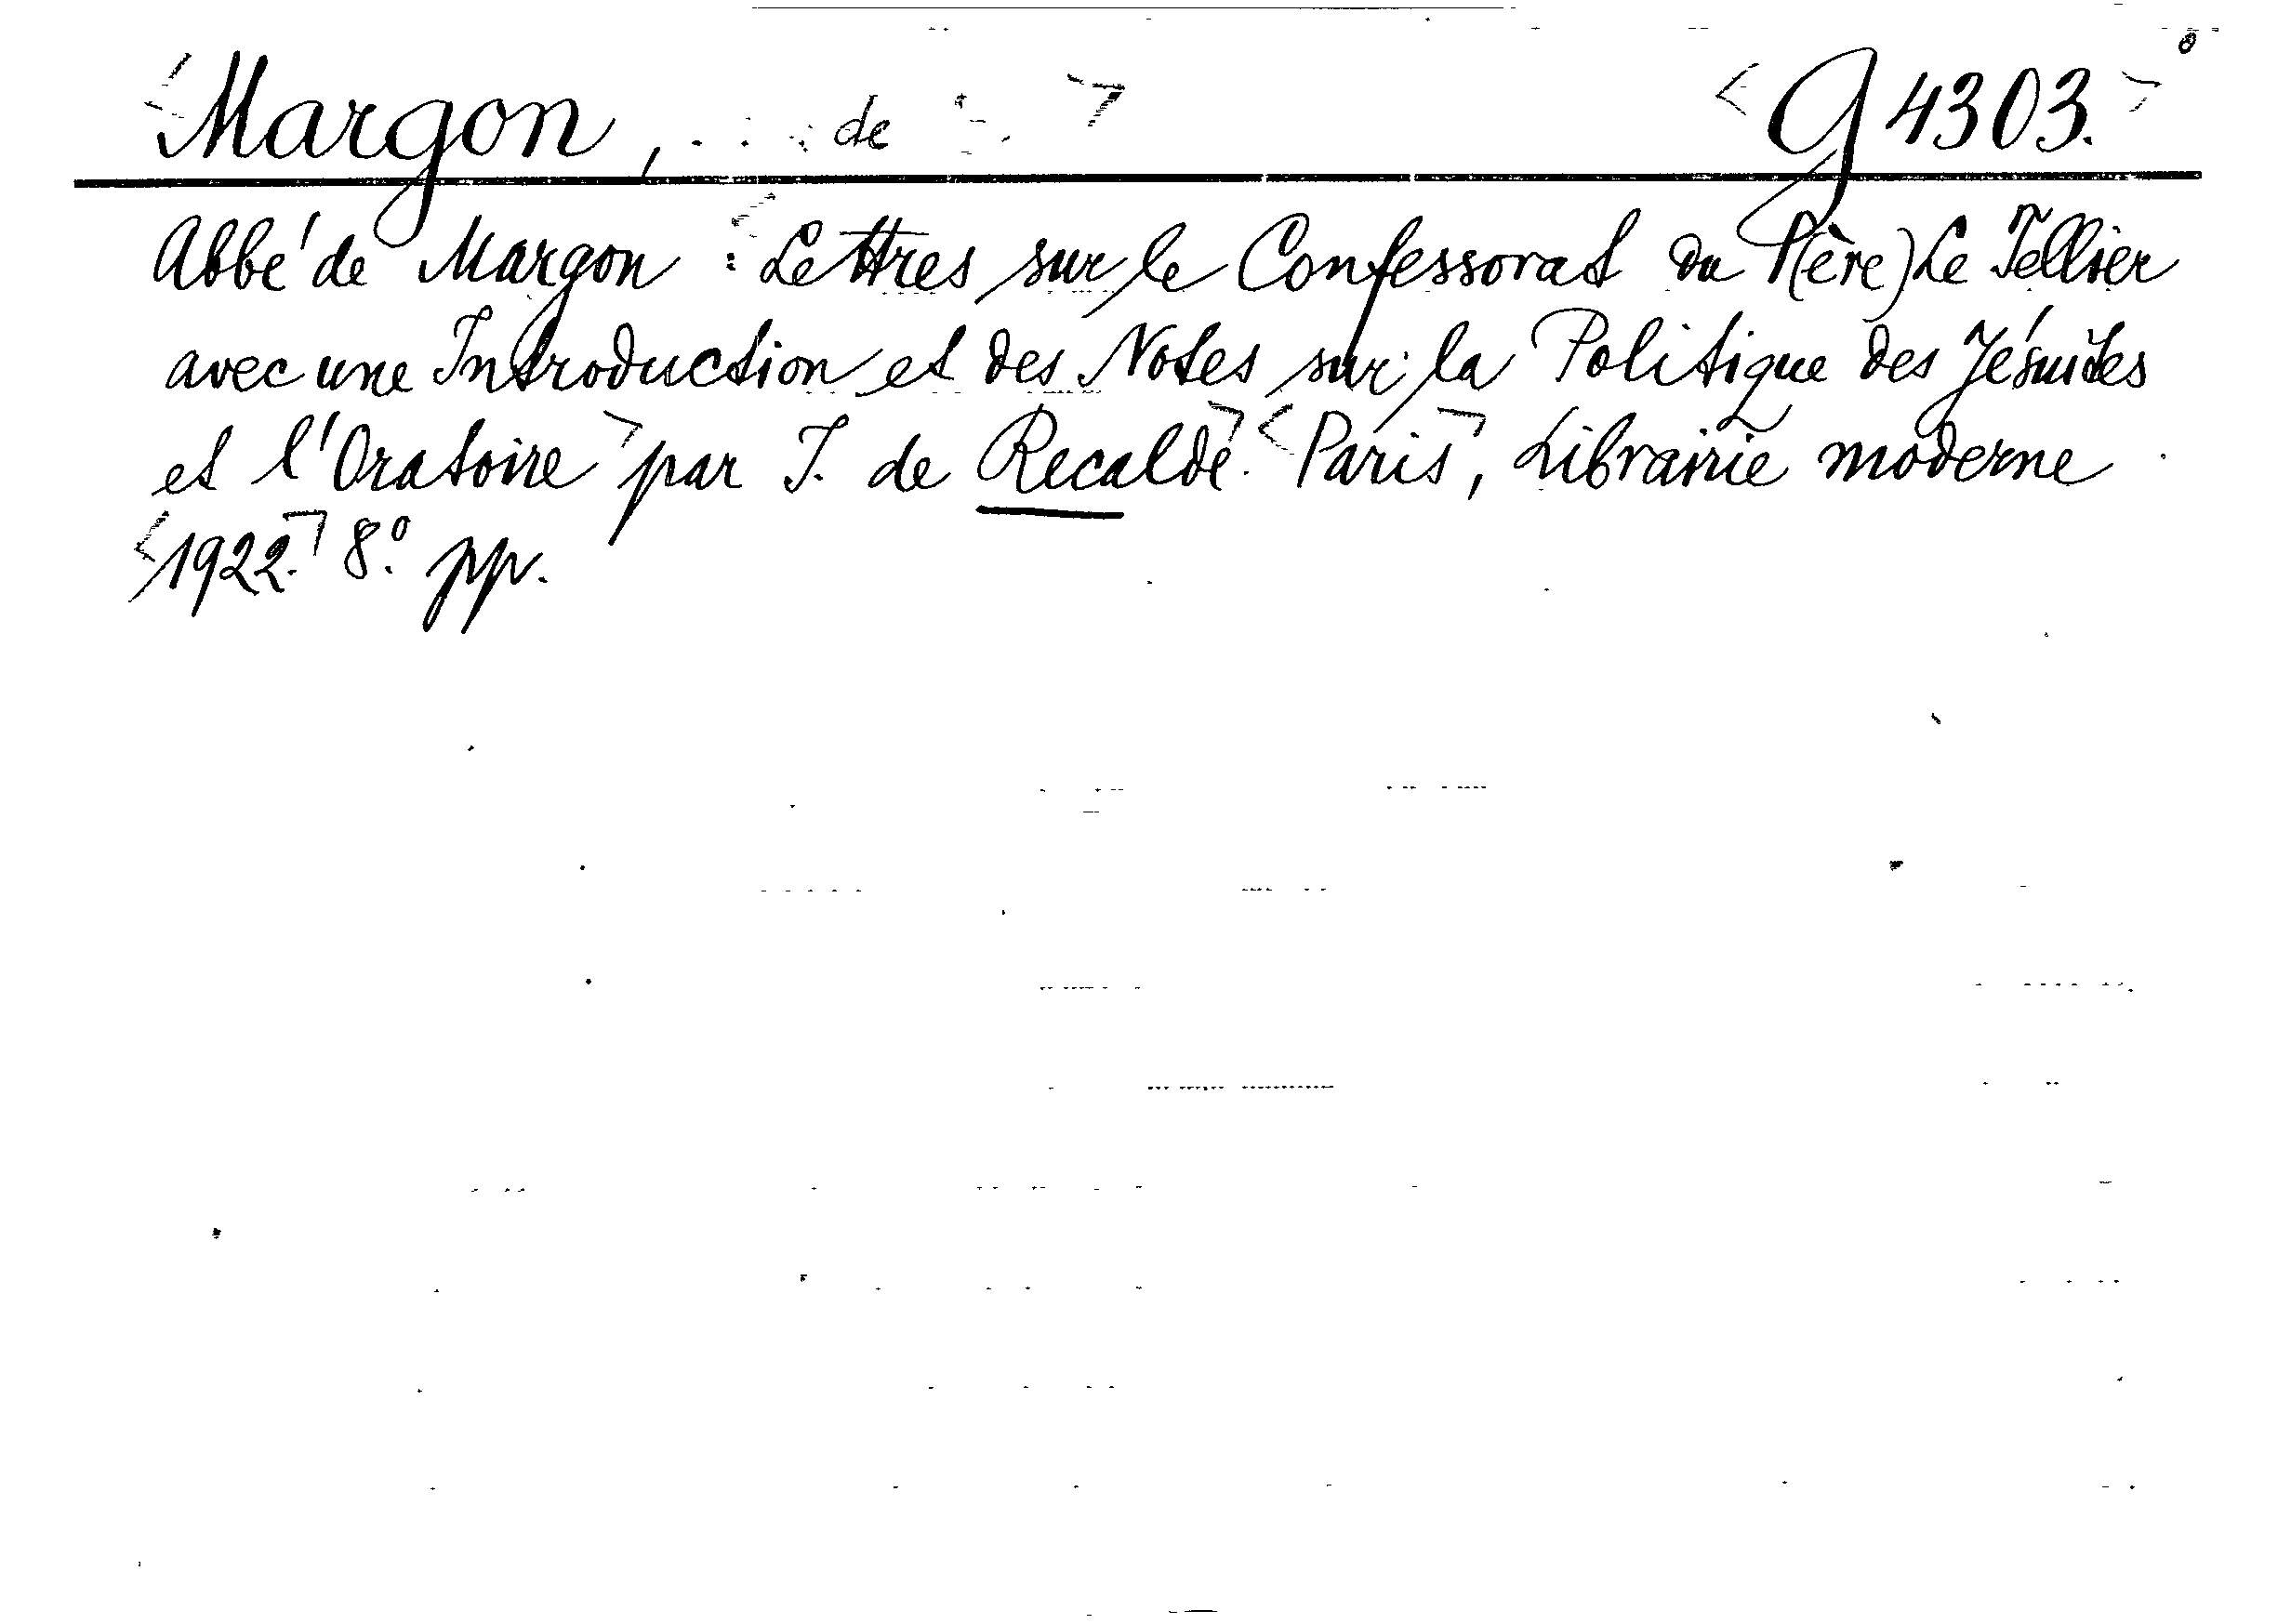 Margon, . . . de G 4303.
Abbé de Margon : Lettres sur le Confessorat du P(ère) Le Tellier
avec une Introduction et des Notes sur la Politique des Jésuites
et l'Oratoire par I. de Recalde. Paris, Librairie moderne
1922. 8.° pp.